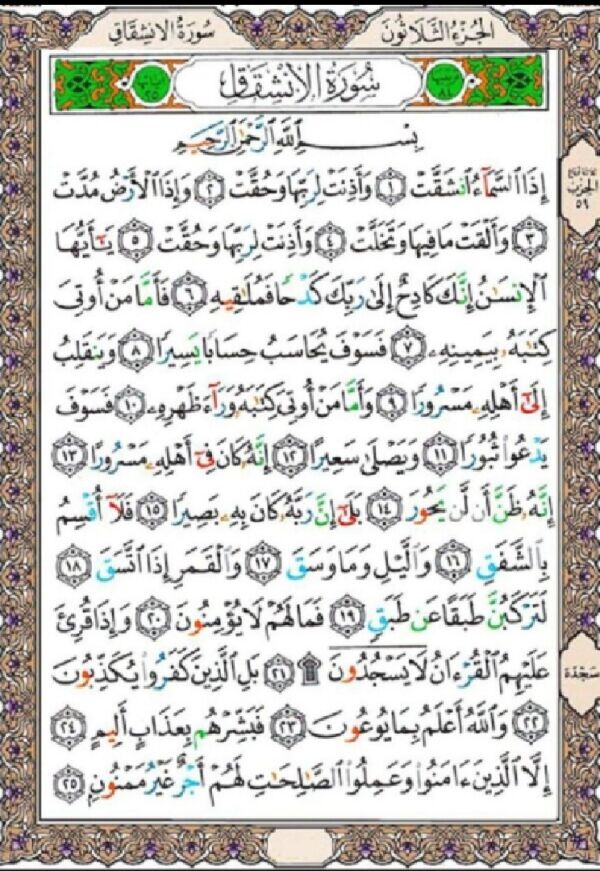 سُورَةُ الانشِقَاقِ الجُزءُ الثَّلَاثُونَ
سُورَةُ الانشِقَاقِ
بِسْمِ اللَّهِ الرَّحْمَٰنِ الرَّحِيمِ
إِذَا السَّمَآءُ انشَقَّتْ ١ وَأَذِنَتْ لِرَبِّهَا وَحُقَّتْ ٢ وَإِذَا الْأَرْضُ مُدَّتْ
٣ وَأَلْقَتْ مَا فِيهَا وَتَخَلَّتْ ٤ وَأَذِنَتْ لِرَبِّهَا وَحُقَّتْ ٥ يَٰٓأَيُّهَا
الْإِنسَٰنُ إِنَّكَ كَادِحٌ إِلَىٰ رَبِّكَ كَدْحًا فَمُلَٰقِيهِ ٦ فَأَمَّا مَنْ أُوتِىَ
كِتَٰبَهُۥ بِيَمِينِهِۦ ٧ فَسَوْفَ يُحَاسَبُ حِسَابًا يَسِيرًا ٨ وَيَنقَلِبُ
إِلَىٰٓ أَهْلِهِۦ مَسْرُورًا ٩ وَأَمَّا مَنْ أُوتِىَ كِتَٰبَهُۥ وَرَآءَ ظَهْرِهِۦ ١٠ فَسَوْفَ
يَدْعُوا۟ ثُبُورًا ١١ وَيَصْلَىٰ سَعِيرًا ١٢ إِنَّهُۥ كَانَ فِىٓ أَهْلِهِۦ مَسْرُورًا ١٣
إِنَّهُۥ ظَنَّ أَن لَّن يَحُورَ ١٤ بَلَىٰٓ إِنَّ رَبَّهُۥ كَانَ بِهِۦ بَصِيرًا ١٥ فَلَآ أُقْسِمُ
بِالشَّفَقِ ١٦ وَالَّيْلِ وَمَا وَسَقَ ١٧ وَالْقَمَرِ إِذَا اتَّسَقَ ١٨
لَتَرْكَبُنَّ طَبَقًا عَن طَبَقٍ ١٩ فَمَا لَهُمْ لَا يُؤْمِنُونَ ٢٠ وَإِذَا قُرِئَ
عَلَيْهِمُ الْقُرْءَانُ لَا يَسْجُدُونَ ۩ ٢١ بَلِ الَّذِينَ كَفَرُوا۟ يُكَذِّبُونَ
٢٢ وَاللَّهُ أَعْلَمُ بِمَا يُوعُونَ ٢٣ فَبَشِّرْهُم بِعَذَابٍ أَلِيمٍ ٢٤
إِلَّا الَّذِينَ ءَامَنُوا۟ وَعَمِلُوا۟ الصَّٰلِحَٰتِ لَهُمْ أَجْرٌ غَيْرُ مَمْنُونٍ ٢٥
الحِزب
٥٩
سَجْدَة